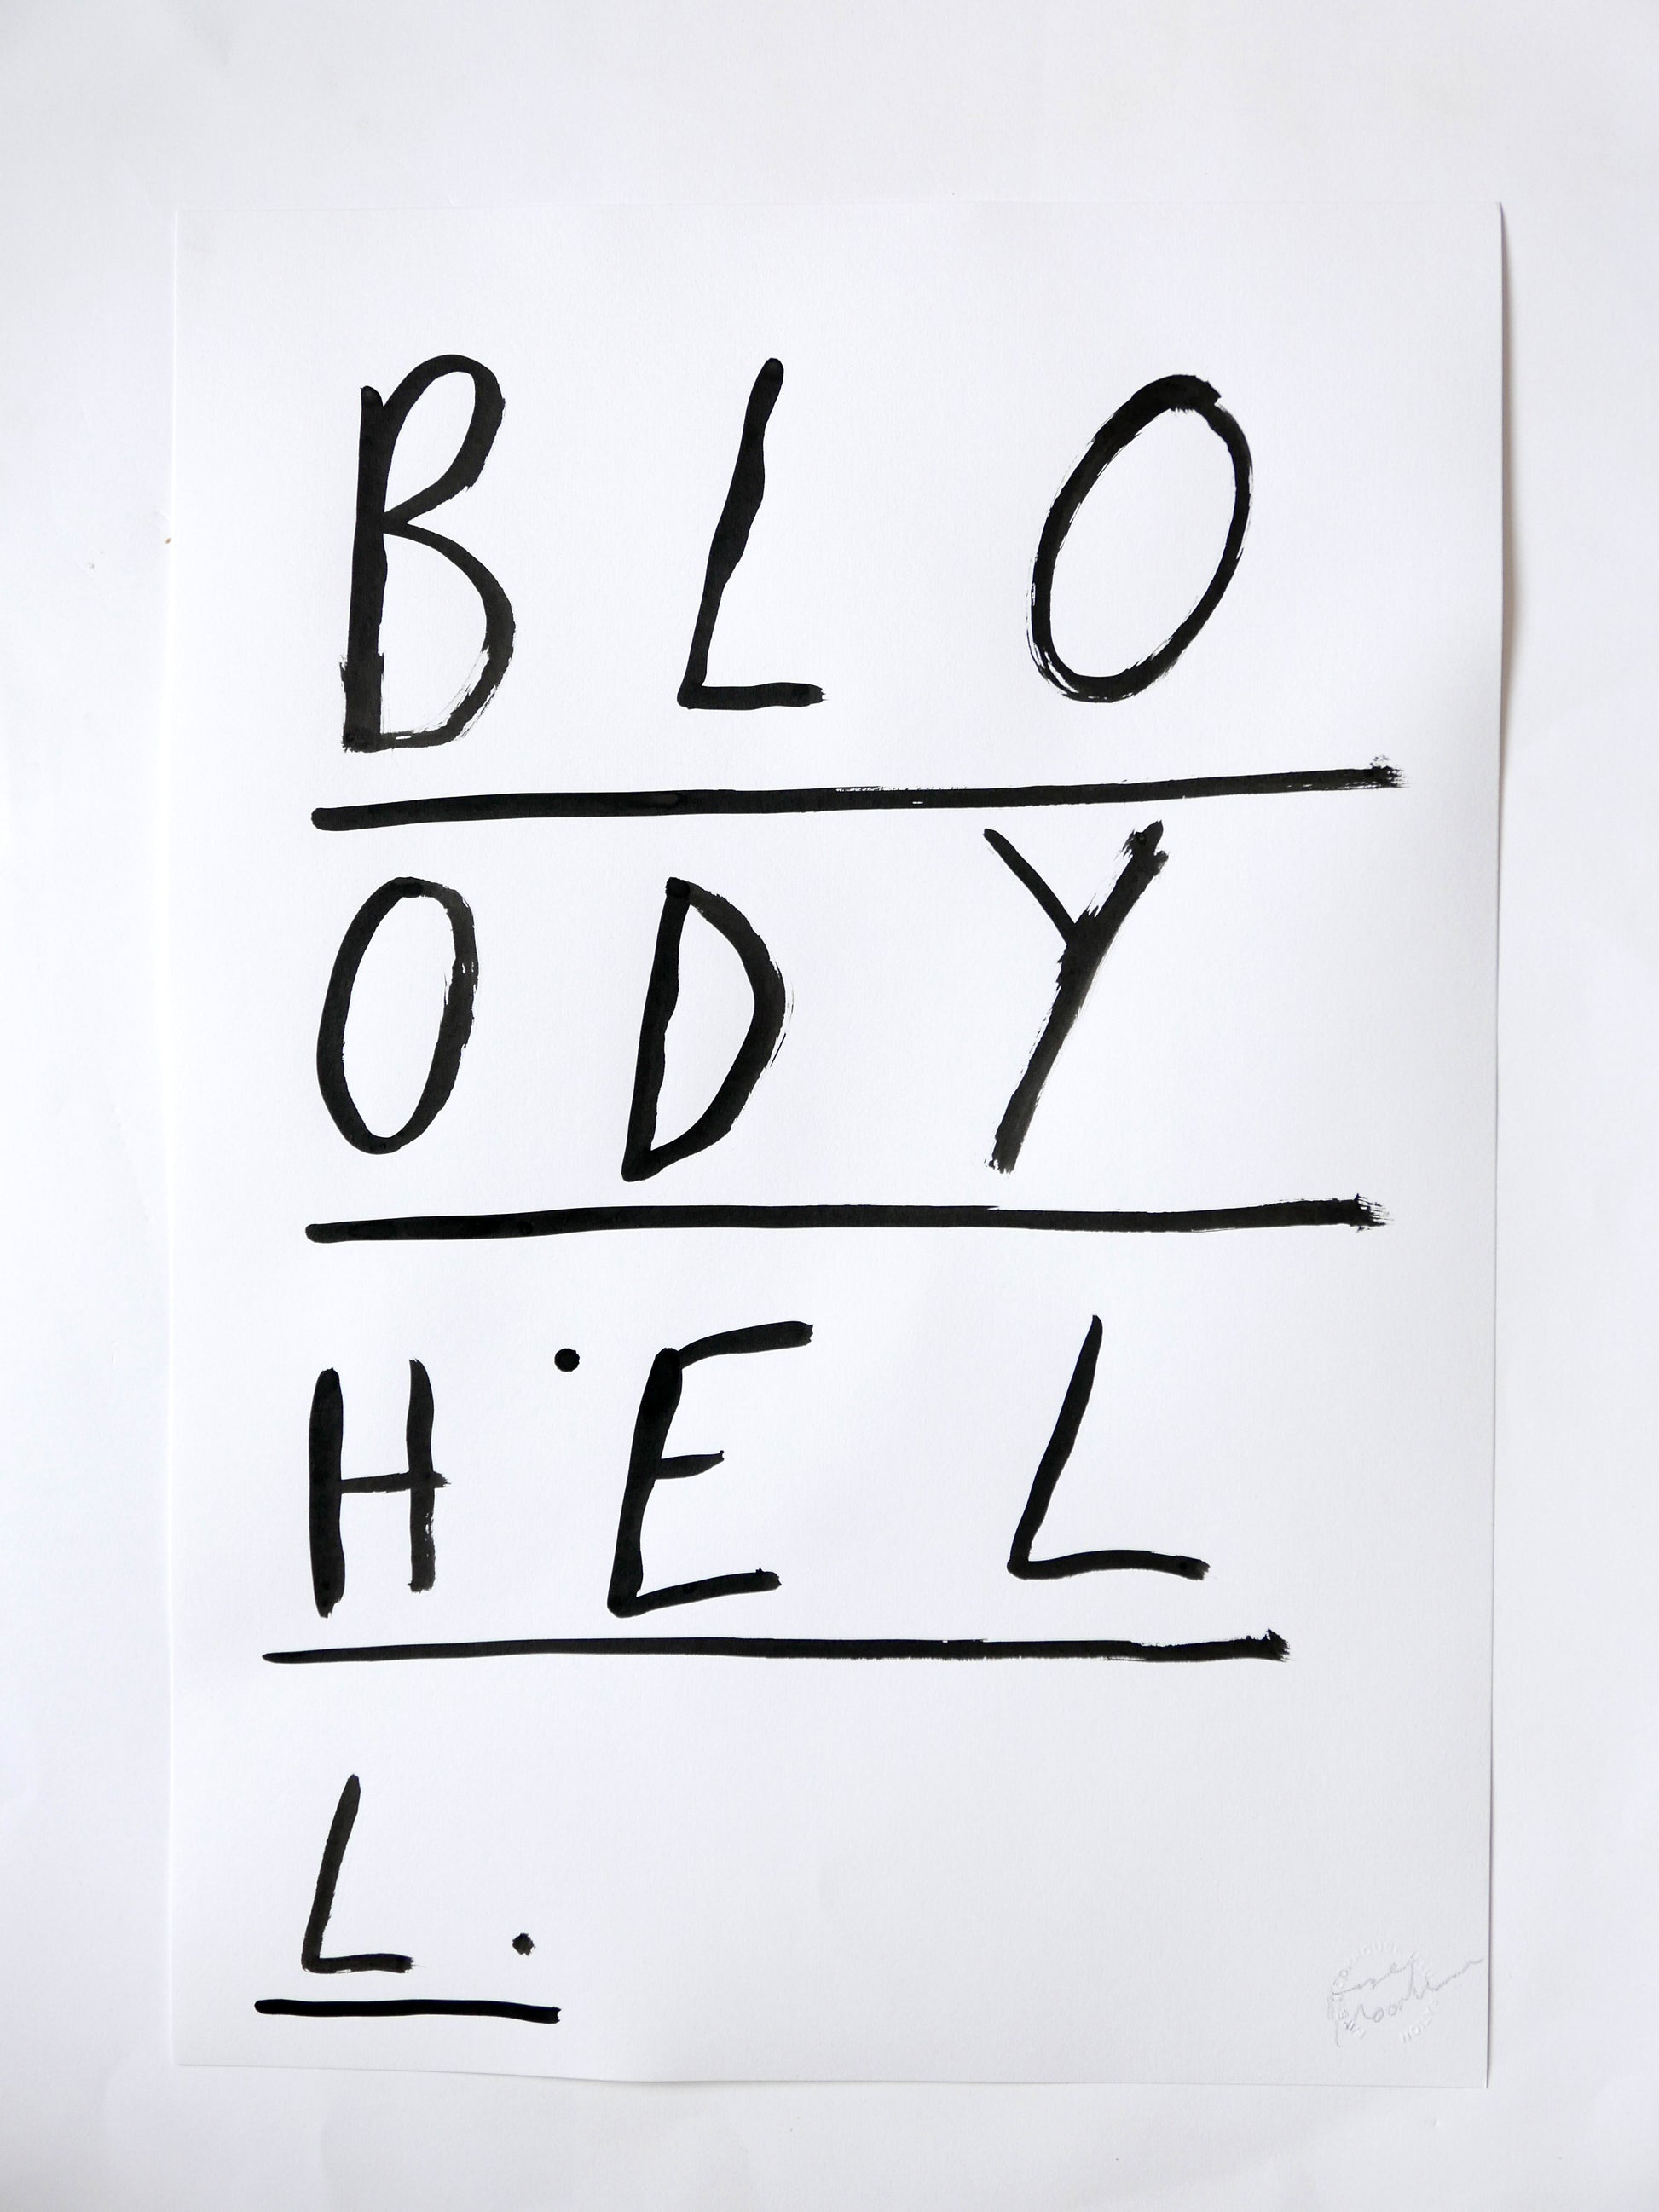 BLO
ODY
H·EL
L.